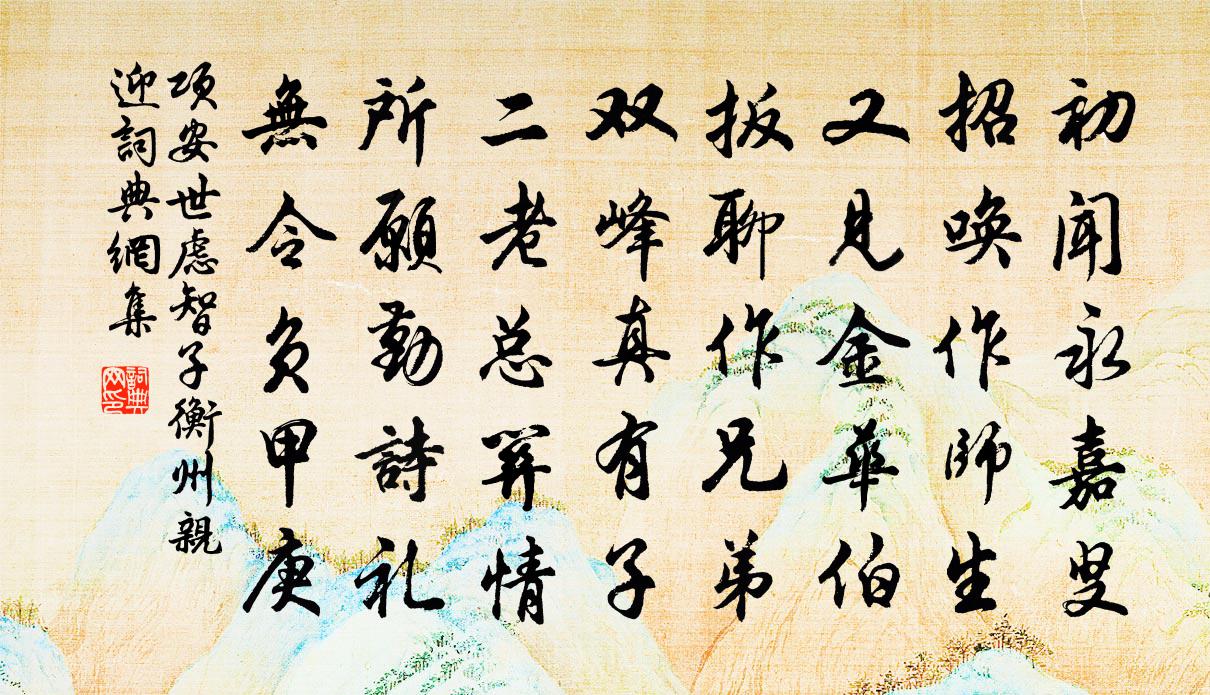 初闻永嘉叟
招唤作师生
又见金华伯
扳聊作兄弟
双峰真有子
二老总关情
所愿勤詩礼
無令負甲庚
项安世慮智子衡州親
迎詞典網集
詞典
网印